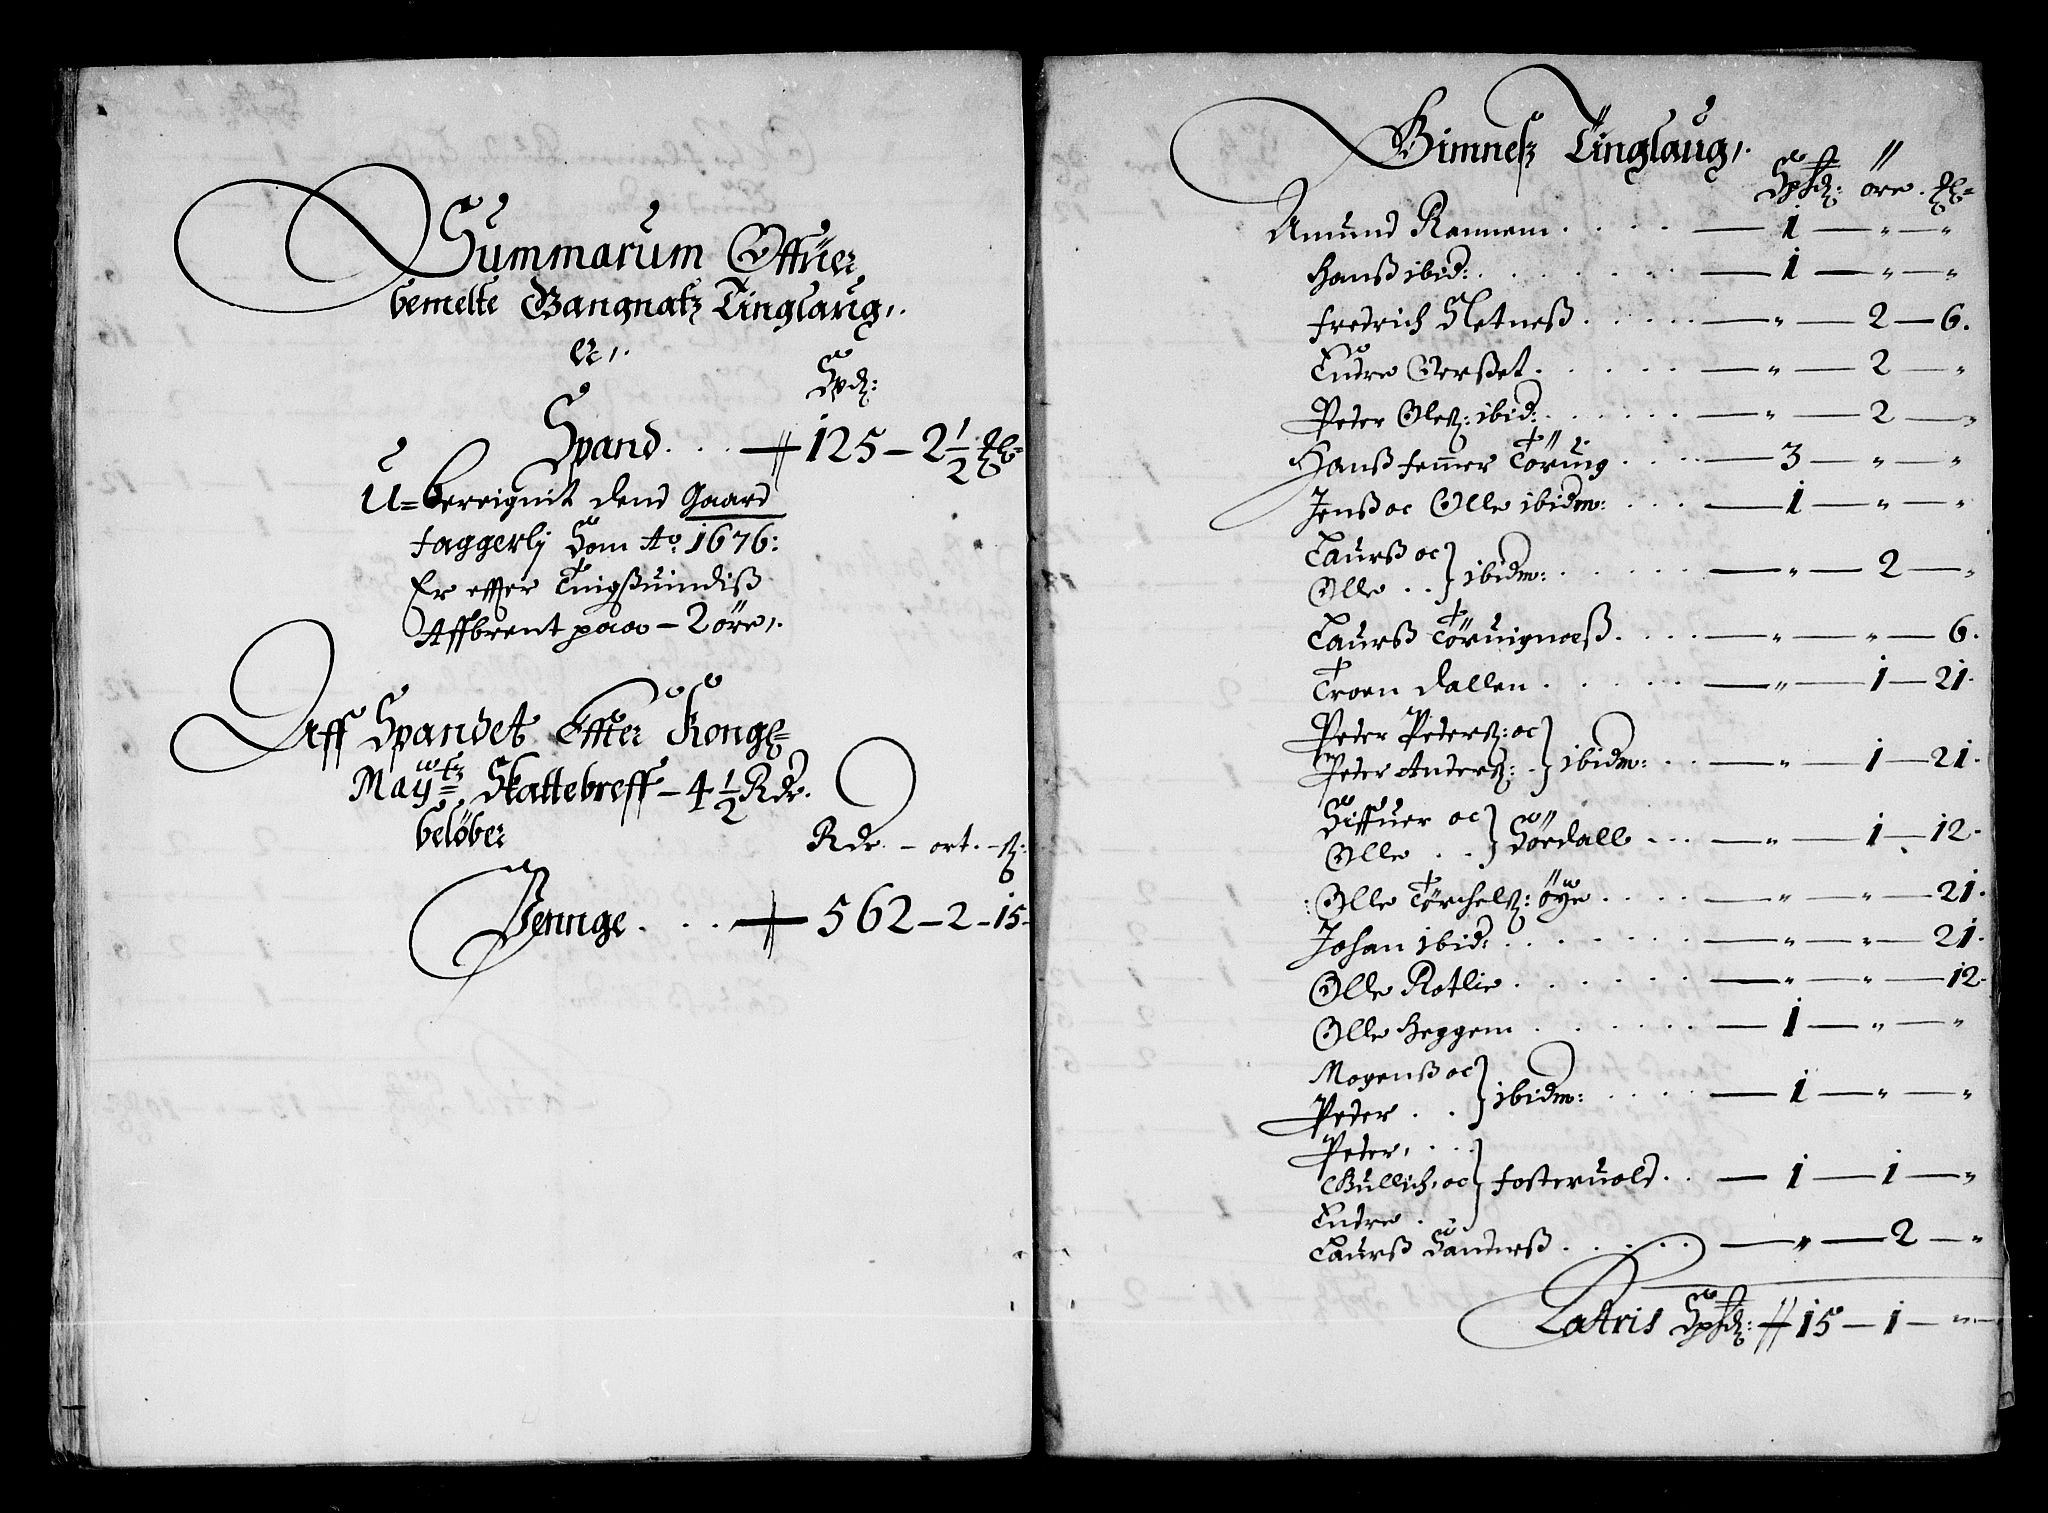 Summarum Offuer
bemelte Bangnatz Tinglaug,
Er,
Spd:
Spand . . . 125 – 2 1/2
U=bereignit dend Gaard
Faggerlj Som Ao. 1676:
Er effter Tingßuindiß
Affbrent paa – 2 öre,
Aff Spandet Effter Kongl
Maytz Skattebreff – 4 1/2 Rdr.
belöber
Rdr. – ort. – ß:
Penge . . . 562 – 2 – 15
Bimneß Tinglaug,
Spd: öre.
Amund Rennem . . . . — 1 — „ — „
Hanß ibid: . . . . — 1 — „ — „
Fredrich Netneß . . . . — „ — 2 — 6.
Tudre Oerßet . . . . — „ — 2 — „
Peter Oleß: ibid: . . . . — „ — 2 — „
Hanß Femmer Töruig . . . — 3 — „ — „
Jenß oc Olle ibidm: . . . — 1 — „ — „
Laurß oc
Olle . . } ibidm: . . . . — „ — 2 — „
Laurß Töruignoeß . . . . — „ — „ — 6.
Troen Dallen . . . . — „ — 1 — 21.
Peter Peterß: oc
Peter Anderß: . } ibidm: . . — „ — 1 — 21.
Siffuer oc
Olle . . } Sördall . . . — „ — 1 — 12.
Olle Törchelß: öye . . . . — „ — „ — 21.
Johan ibid: . . . . — „ — „ — 21.
Olle Rotlie . . . . — „ — „ — 12.
Olle Heggem . . . . — 1 — „ — „
Mogenß oc
Peter . . } ibidm: . . . . — 1 — „ — „
Peter, . . .
Gullich, oc } Fosteruold . . — 1 — 1 — „
Tudre .
Laurß Sanderß . . . . — „ — 2 — „
Latris Spd: 15 – 1 – „